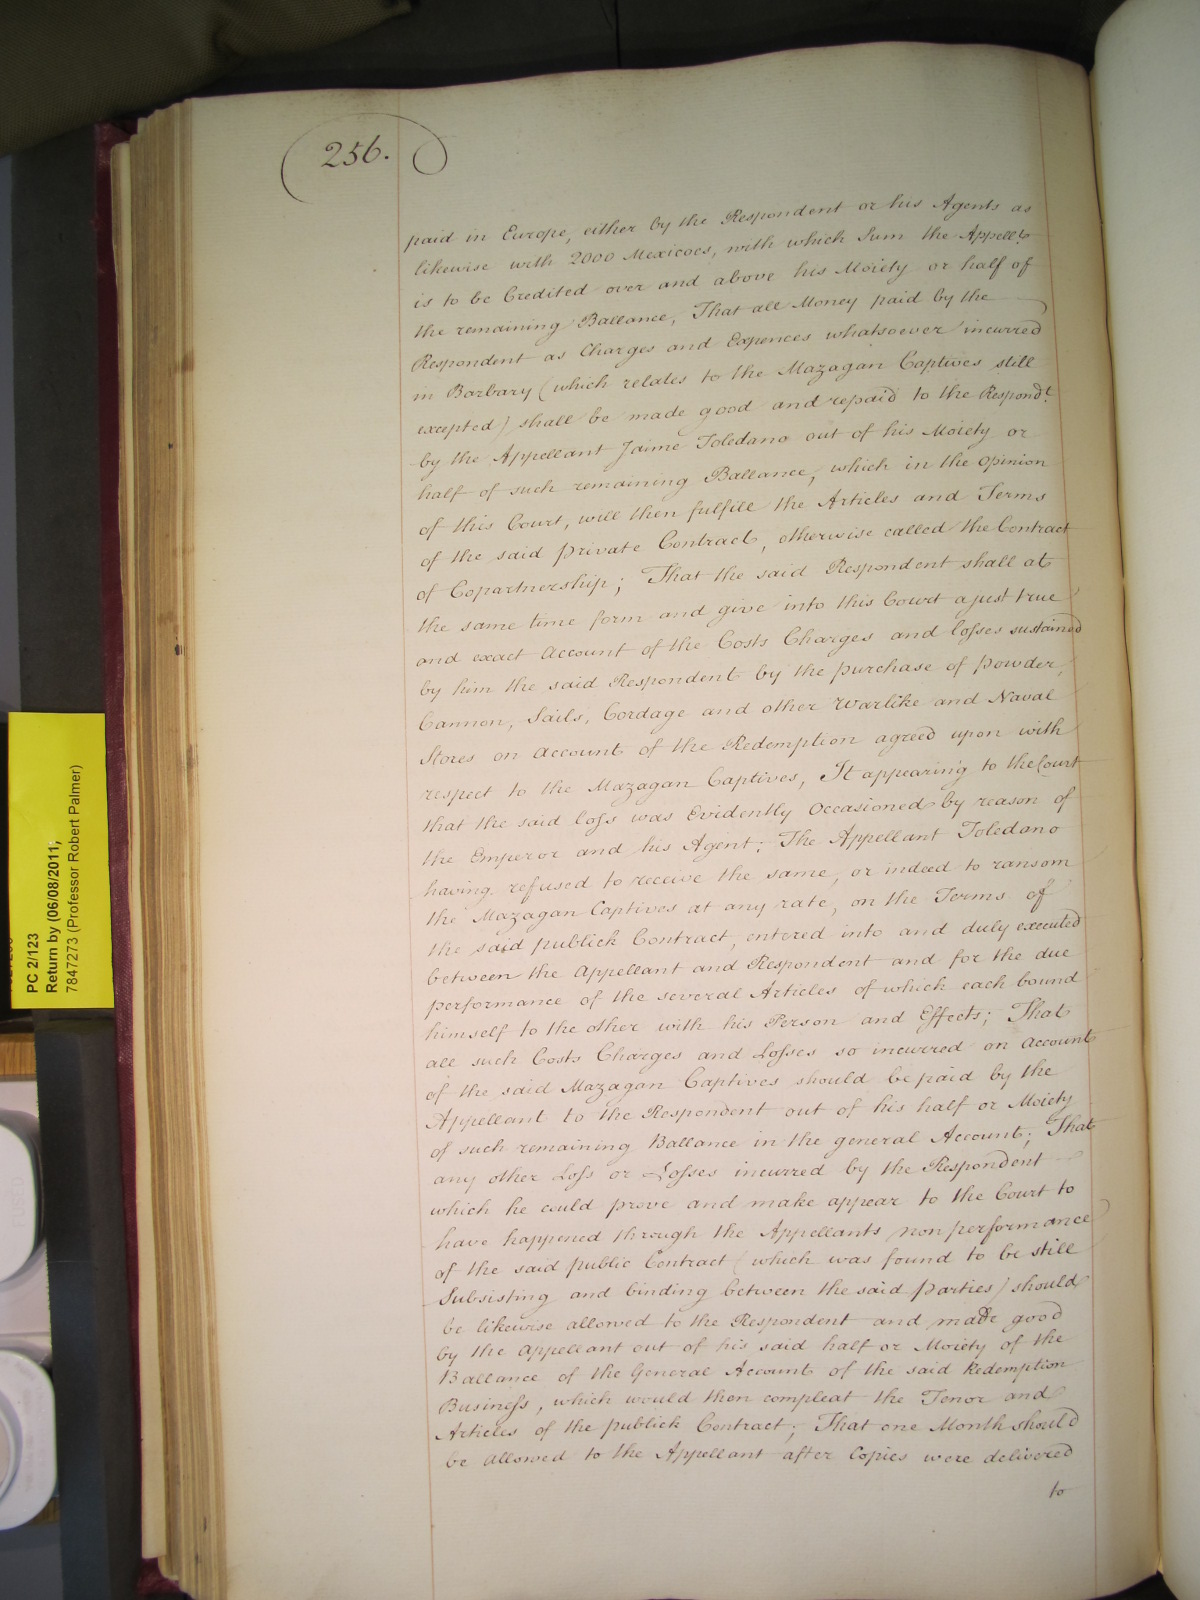 256.
paid in Europe, either by the Respondent or his Agents as
likewise with 2000 Mexicoes, with which Sum the Appellt.
is to be Credited over and above his Moiety or half of
the remaining Ballance, That all Money paid by the
Respondent as Charges and Expences whatsoever incurred
in Barbary (which relates to the Mazagan Captives still
excepted) shall be made good and repaid to the Respondt.
by the Appellant Jaime Toledano out of his Moiety or
half of such remaining Ballance, which in the Opinion
of this Court, will then fulfill the Articles and Terms
of the said private Contract, otherwise called the Contract
of Copartnership; That the said Respondent shall at
the same time form and give into this Court a just true
and exact Account of the Costs Charges and losses sustained
by him the said Respondent by the purchase of Powder,
Cannon, Sails, Cordage and other Warlike and Naval
Stores on Account of the Redemption agreed upon with
respect to the Mazagan Captives, It appearing to the Court
that the said loss was Evidently Occasioned by reason of
the Emperor and his Agent; The Appellant Toledano
having refused to receive the same, or indeed to ransom
the Mazagan Captives at any rate, on the Terms of
the said publick Contract, entered into and duly executed
between the Appellant and Respondent and for the due
performance of the several Articles of which each bound
himself to the other with his Person and Effects; That
all such Costs Charges and Losses so incurred on Account
of the said Mazagan Captives should be paid by the
Appellant to the Respondent out of his half or Moiety
of such remaining Ballance in the general Account; That
any other Loss or Losses incurred by the Respondent
which he could prove and make appear to the Court to
have happened through the Appellants non performance
of the said public Contract (which was found to be still
Subsisting and binding between the said parties) should
be likewise allowed to the Respondent and made good
by the Appellant out of his said half or Moiety of the
Ballance of the General Account of the said Redemption
Business, which would then compleat the Tenor and
Articles of the publick Contract; That one Month should
be allowed to the Appellant after Copies were delivered
to
PC 2/123
Return by (06/08/2011;
7847273 (Professor Robert Palmer)